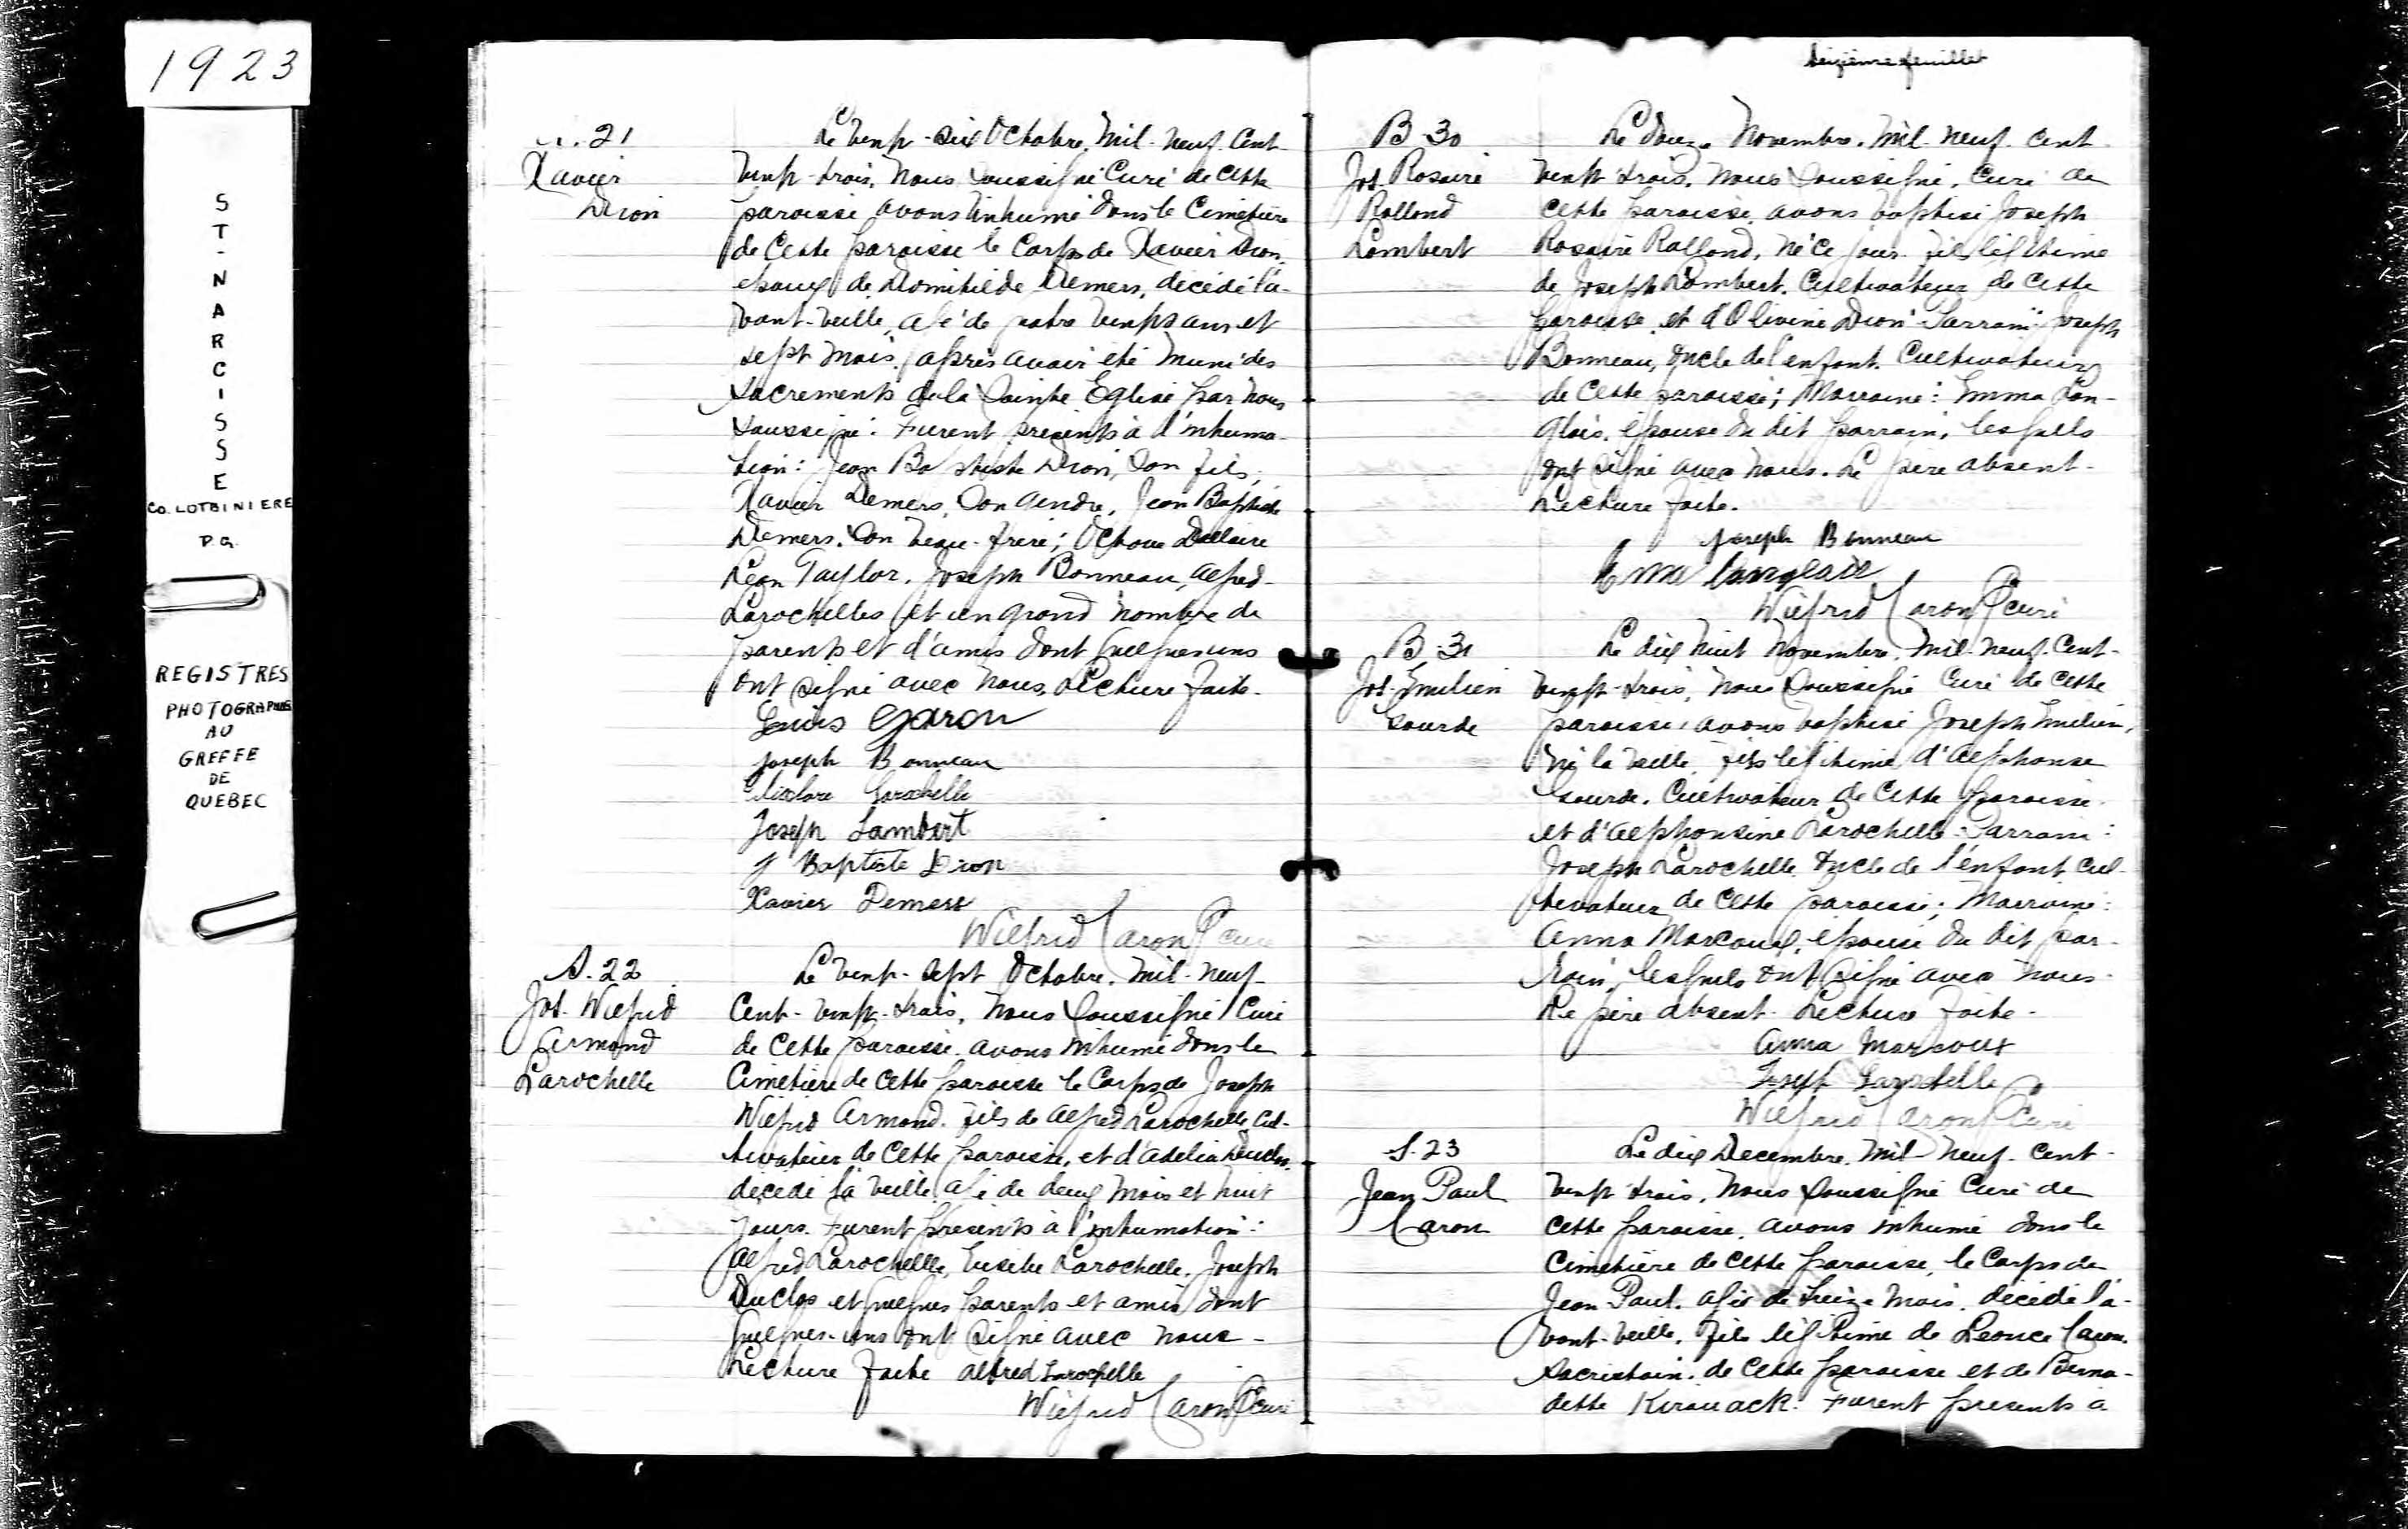 1923
ST-NARCISSE
CO. LOTBINIERE
P.Q.
REGISTRES
PHOTOGRAPHIÉS
AU
GREFFE
DE
QUEBEC
S. 21
Xavier
Dion
Le vingt-six Octobre, mil-neuf-cent
vingt-trois, nous soussigné Curé de cette
paroisse avons inhumé dans le Cimetière
de cette paroisse le Corps de Xavier Dion,
époux de Domithilde Demers, décédé l'a-
vant-veille, agé de quatre vingts ans et
sept mois, après avoir été muni des
Sacrements de la Sainte Eglise par nous
soussigné. Furent présents à l'inhuma-
tion: Jean Baptiste Dion, son fils,
Xavier Demers, son gendre, Jean Baptiste
Demers, son beau-frère; Octave Dallaire
Léon Taylor, Joseph Bonneau, Alfred
Larochelles et un grand nombre de
parents et d'amis dont quelques uns
ont signé avec nous, Lecture faite.
Louis Garon
Joseph Bonneau
Larochelle
Joseph Lambert
J Baptiste Dion
Xavier Demers
Wilfrid Caron Ptre curé
S. 22
Jos. Wilfrid
Armand
Larochelle
Le vingt-sept Octobre, mil-neuf-
cent-vingt-trois, nous soussigné Curé
de cette paroisse, avons inhumé dans le
Cimetière de cette paroisse le Corps de Joseph
Wilfrid Armand, fils de Alfred Larochelle, cul-
tivateur de cette paroisse, et d'Adelia Duclos,
décédé la veille, agé de deux mois et huit
jours. Furent présents à l'inhumation:
Alfred Larochelle, Eusèbe Larochelle, Joseph
Duclos et quelques parents et amis dont
quelques-uns ont signé avec nous-
Lecture faite Alfred Larochelle
Wilfrid Caron Ptre curé
Seizième feuillet
B-30
Jos. Rosaire
Rolland
Lambert
Le douze Novembre, mil-neuf-cent
vingt trois, nous soussigné, curé de
cette paroisse, avons baptisé Joseph
Rosaire Rolland, né ce jour, fils légitime
de Joseph Lambert, cultivateur de cette
paroisse, et d'Olivine Dion. Parrain: Joseph
Bonneau, oncle de l'enfant, cultivateur
de cette paroisse; Marraine: Emma Lan-
glois, épouse du dit parrain, lesquels
ont signé avec nous. Le père absent.
Lecture faite.
Joseph Bonneau
Ema Langlois
Wilfrid Caron Ptre curé
B-31
Jos. Emilien
Sourde
Le dix huit Novembre, mil-neuf-cent-
vingt-trois, nous soussigné Curé de cette
paroisse, avons baptisé Joseph Emilien,
né la veille, fils légitime d'Alphonse
Sourde, Cultivateur de cette paroisse
et d'Alphonsine Larochelle. Parrain:
Joseph Larochelle, oncle de l'enfant, cul-
tivateur de cette paroisse; Marraine:
Anna Marcoux, épouse du dit par-
rain, lesquels ont signé avec nous.
Le père absent. Lecture faite.
Anna Marcoux
Joseph Larochelle
Wilfrid Caron Ptre Curé
S. 23
Jean Paul
Caron
Le dix Decembre, mil-neuf-cent-
vingt trois, nous soussigné Curé de
cette paroisse, avons inhumé dans le
Cimetière de cette paroisse, le Corps de
Jean Paul, agé de treize mois, décédé l'a-
vant-veille, fils légitime de Léonce Caron,
Sacristain, de cette paroisse et de Berna-
dette Kirouack. Furent présents à